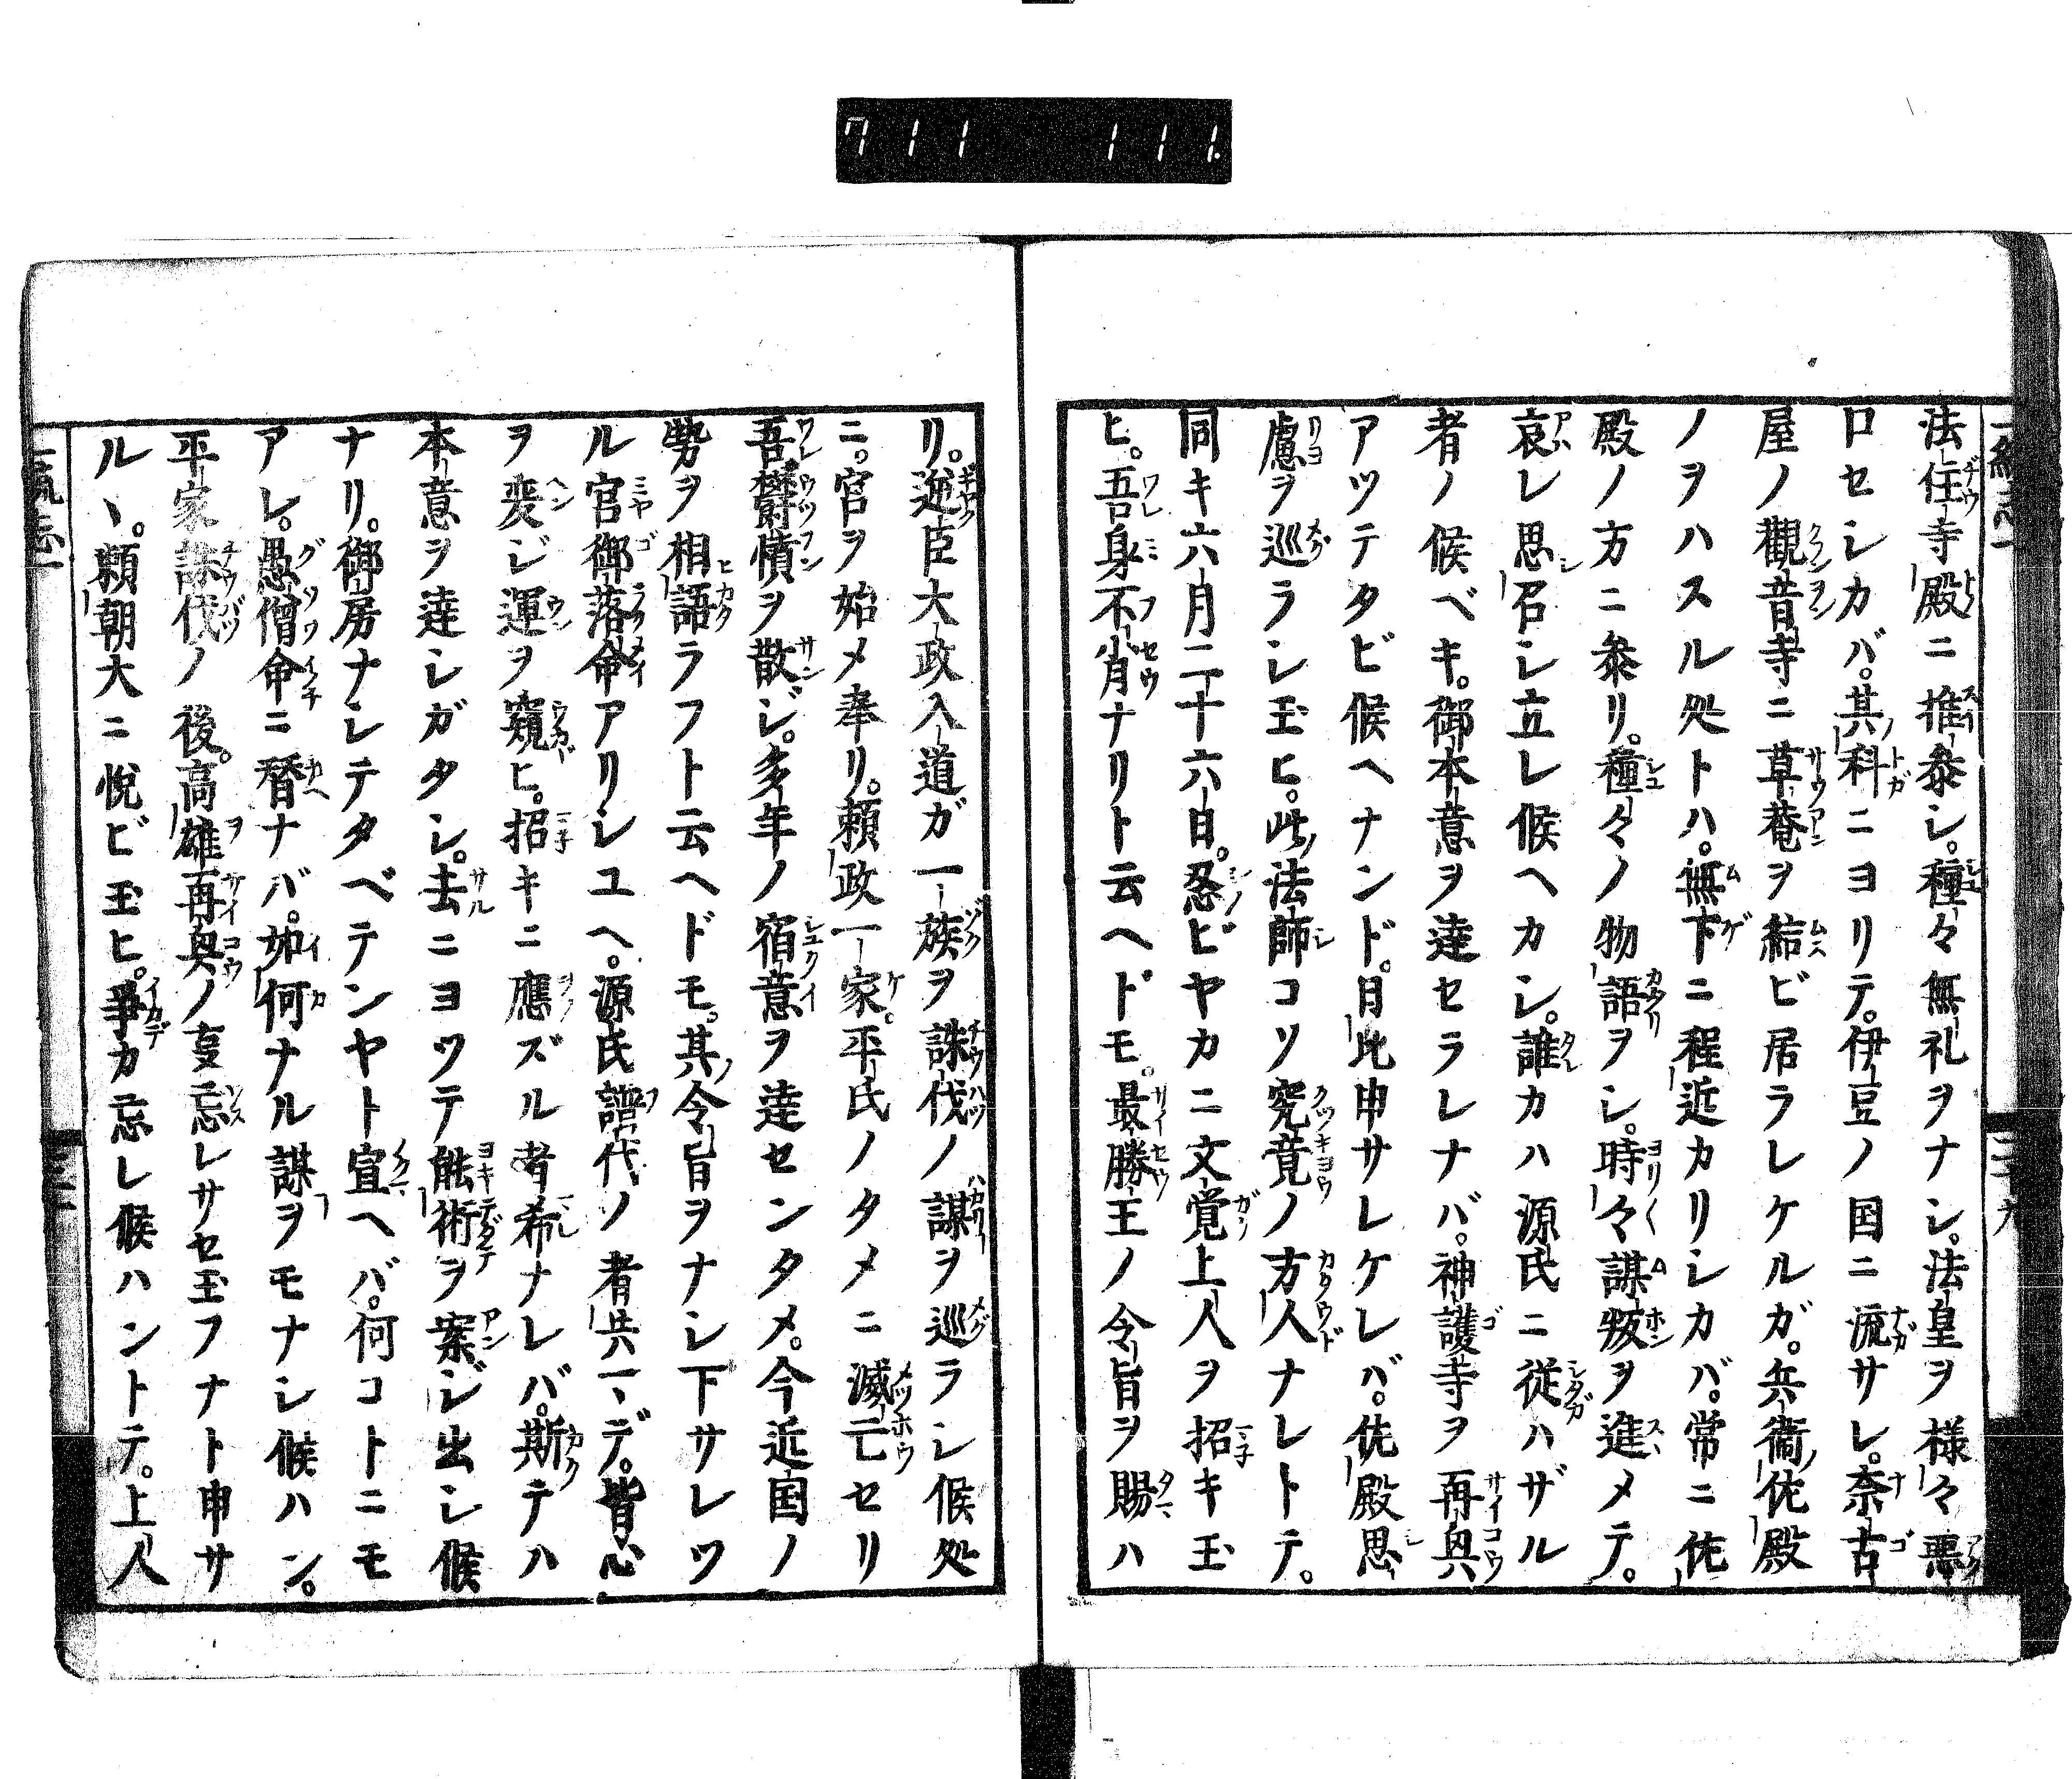 711 111.
法住寺殿ニ推參シ。種々無礼ヲナシ。法皇ヲ様々悪
口セシカバ。其科ニヨリテ。伊豆ノ国ニ流サレ。奈古
屋ノ觀音寺ニ草菴ヲ結ビ居ラレケルガ。兵衞佐殿
ノヲハスル処トハ。無下ニ程近カリシカバ。常ニ佐
殿ノ方ニ參リ。種々ノ物語ヲシ。時々謀叛ヲ進メテ。
哀レ思召シ立レ候ヘカシ。誰カハ源氏ニ従ハザル
者ノ候ベキ。御本意ヲ達セラレナバ。神護寺ヲ再興
アツテタビ候ヘナンド。日比申サレケレバ。佐殿思
慮ヲ巡ラシ玉ヒ。此法師コソ究竟ノ方人ナレトテ。
同キ六月二十六日。忍ビヤカニ文覚上人ヲ招キ玉
ヒ。吾身不肖ナリト云ヘドモ。最勝王ノ令旨ヲ賜ハ
リ。逆臣大政入道ガ一族ヲ誅伐ノ謀ヲ巡ラシ候処
ニ。宮ヲ始メ奉リ。頼政一家。平氏ノタメニ滅亡セリ
吾欝憤ヲ散ジ。多年ノ宿意ヲ達センタメ。今近国ノ
勢ヲ相語ラフト云ヘドモ。其令旨ヲナシ下サレツ
ル宮御落命アリシユヘ。源氏譜代ノ者共一々デ。皆心
ヲ変ジ運ヲ窺ヒ。招キニ應ズル者希ナレバ。斯テハ
本意ヲ達シガタシ。去ニヨツテ能術ヲ案ジ出シ候
ナリ。御房ナシテタベテンヤト宣ヘバ。何コトニモ
アレ。愚僧命ニ替ナバ。如何ナル謀ヲモナシ候ハン。
平家誅伐ノ後。高雄再興ノ叓忘レサセ玉フナト申サ
ルヽ。頼朝大ニ悦ビ玉ヒ。爭カ忘レ候ハントテ。上人